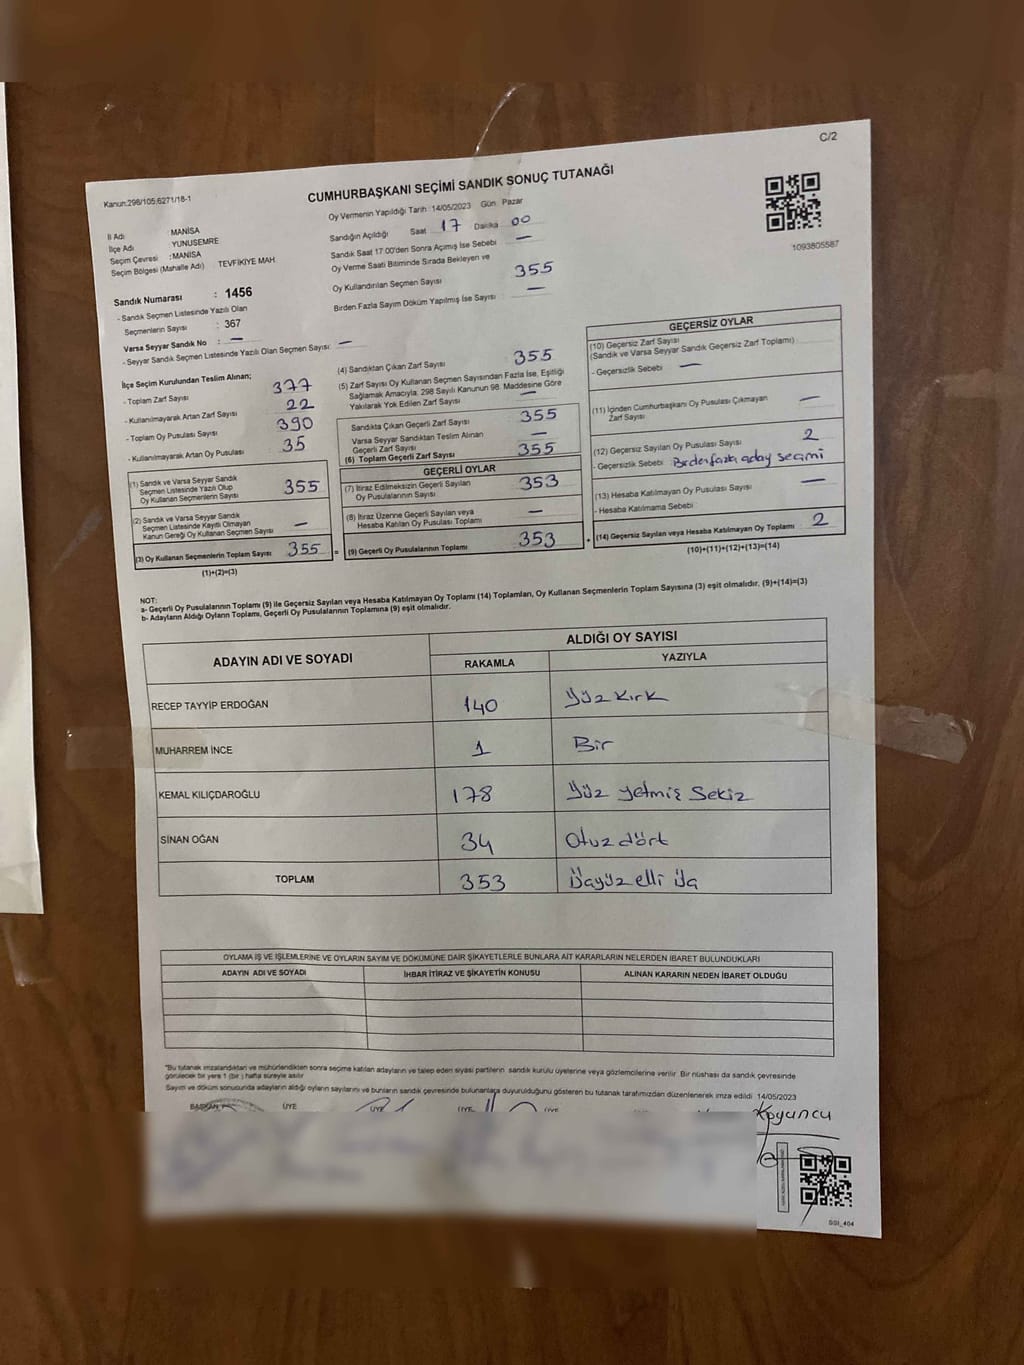 C/2
Kanun:298/105,6271/18-1
CUMHURBAŞKANI SEÇİMİ SANDIK SONUÇ TUTANAĞI
1093805587
İl Adı : MANİSA
İlçe Adı YUNUSEMRE
Seçim Çevresi : MANİSA
Seçim Bölgesi (Mahalle Adı) : TEVFİKİYE MAH.
Sandık Numarası : 1456
- Sandık Seçmen Listesinde Yazılı Olan
Seçmenlerin Sayısı : 367
Varsa Seyyar Sandık No : —
- Seyyar Sandık Seçmen Listesinde Yazılı Olan Seçmen Sayısı: —
Oy Vermenin Yapıldığı Tarih :14/05/2023 Gün : Pazar
Sandığın Açıldığı Saat 17 Dakika 00
Sandık Saat 17.00'den Sonra Açımış İse Sebebi —
Oy Verme Saati Bitiminde Sırada Bekleyen ve
Oy Kullandırılan Seçmen Sayısı 355
Birden Fazla Sayım Döküm Yapılmış İse Sayısı —
İlçe Seçim Kurulundan Teslim Alınan;
- Toplam Zarf Sayısı 377
- Kullanılmayarak Artan Zarf Sayısı 22
- Toplam Oy Pusulası Sayısı 390
- Kullanılmayarak Artan Oy Pusulası 35
(1) Sandık ve Varsa Seyyar Sandık
Seçmen Listesinde Yazılı Olup
Oy Kullanan Seçmenlerin Sayısı 355
(2) Sandık ve Varsa Seyyar Sandık
Seçmen Listesinde Kayıtlı Olmayan
Kanun Gereği Oy Kullanan Seçmen Sayısı —
(3) Oy Kullanan Seçmenlerin Toplam Sayısı 355 =
(1)+(2)=(3)
(4) Sandıktan Çıkan Zarf Sayısı 355
(5) Zarf Sayısı Oy Kullanan Seçmen Sayısından Fazla İse, Eşitliği
Sağlamak Amacıyla, 298 Sayılı Kanunun 98. Maddesine Göre
Yakılarak Yok Edilen Zarf Sayısı —
Sandıkta Çıkan Geçerli Zarf Sayısı 355
Varsa Seyyar Sandıktan Teslim Alınan
Geçerli Zarf Sayısı —
(6) Toplam Geçerli Zarf Sayısı 355
GEÇERLİ OYLAR
(7) İtiraz Edilmeksizin Geçerli Sayılan
Oy Pusulalarının Sayısı 353
(8) İtiraz Üzerine Geçerli Sayılan veya
Hesaba Katılan Oy Pusulası Toplamı —
(9) Geçerli Oy Pusulalarının Toplamı 353 +
GEÇERSİZ OYLAR
(10) Geçersiz Zarf Sayısı
(Sandık ve Varsa Seyyar Sandık Geçersiz Zarf Toplamı)
- Geçersizlik Sebebi —
(11) İçinden Cumhurbaşkanı Oy Pusulası Çıkmayan
Zarf Sayısı —
(12) Geçersiz Sayılan Oy Pusulası Sayısı 2
- Geçersizlik Sebebi Birden fazla aday seçimi
(13) Hesaba Katılmayan Oy Pusulası Sayısı —
- Hesaba Katılmama Sebebi
(14) Geçersiz Sayılan veya Hesaba Katılmayan Oy Toplamı 2
(10)+(11)+(12)+(13)=(14)
NOT:
a- Geçerli Oy Pusulalarının Toplamı (9) ile Geçersiz Sayılan veya Hesaba Katılmayan Oy Toplamı (14) Toplamları, Oy Kullanan Seçmenlerin Toplam Sayısına (3) eşit olmalıdır. (9)+(14)=(3)
b- Adayların Aldığı Oyların Toplamı, Geçerli Oy Pusulalarının Toplamına (9) eşit olmalıdır.
ADAYIN ADI VE SOYADI
ALDIĞI OY SAYISI
RAKAMLA YAZIYLA
RECEP TAYYİP ERDOĞAN 140 Yüz kırk
MUHARREM İNCE 1 Bir
KEMAL KILIÇDAROĞLU 178 Yüz yetmiş Sekiz
SİNAN OĞAN 34 Otuz dört
TOPLAM 353 Üçyüz elli üç
OYLAMA İŞ VE İŞLEMLERİNE VE OYLARIN SAYIM VE DÖKÜMÜNE DAİR ŞİKAYETLERLE BUNLARA AİT KARARLARIN NELERDEN İBARET BULUNDUKLARI
ADAYIN ADI VE SOYADI İHBAR İTİRAZ VE ŞİKAYETİN KONUSU ALINAN KARARIN NEDEN İBARET OLDUĞU
*Bu tutanak imzalandıktan ve mühürlendikten sonra seçime katılan adayların ve talep eden siyasi partilerin sandık kurulu üyelerine veya gözlemcilerine verilir. Bir nüshası da sandık çevresinde
görülecek bir yere 1 (bir ) hafta süreyle asılır
Sayım ve döküm sonucunda adayların aldığı oyların sayılarını ve bunların sandık çevresinde bulunanlarca duyurulduğunu gösteren bu tutanak tarafımızdan düzenlenerek imza edildi 14/05/2023
BAŞKAN ÜYE ÜYE ÜYE ÜYE
Koyuncu
SSI_404